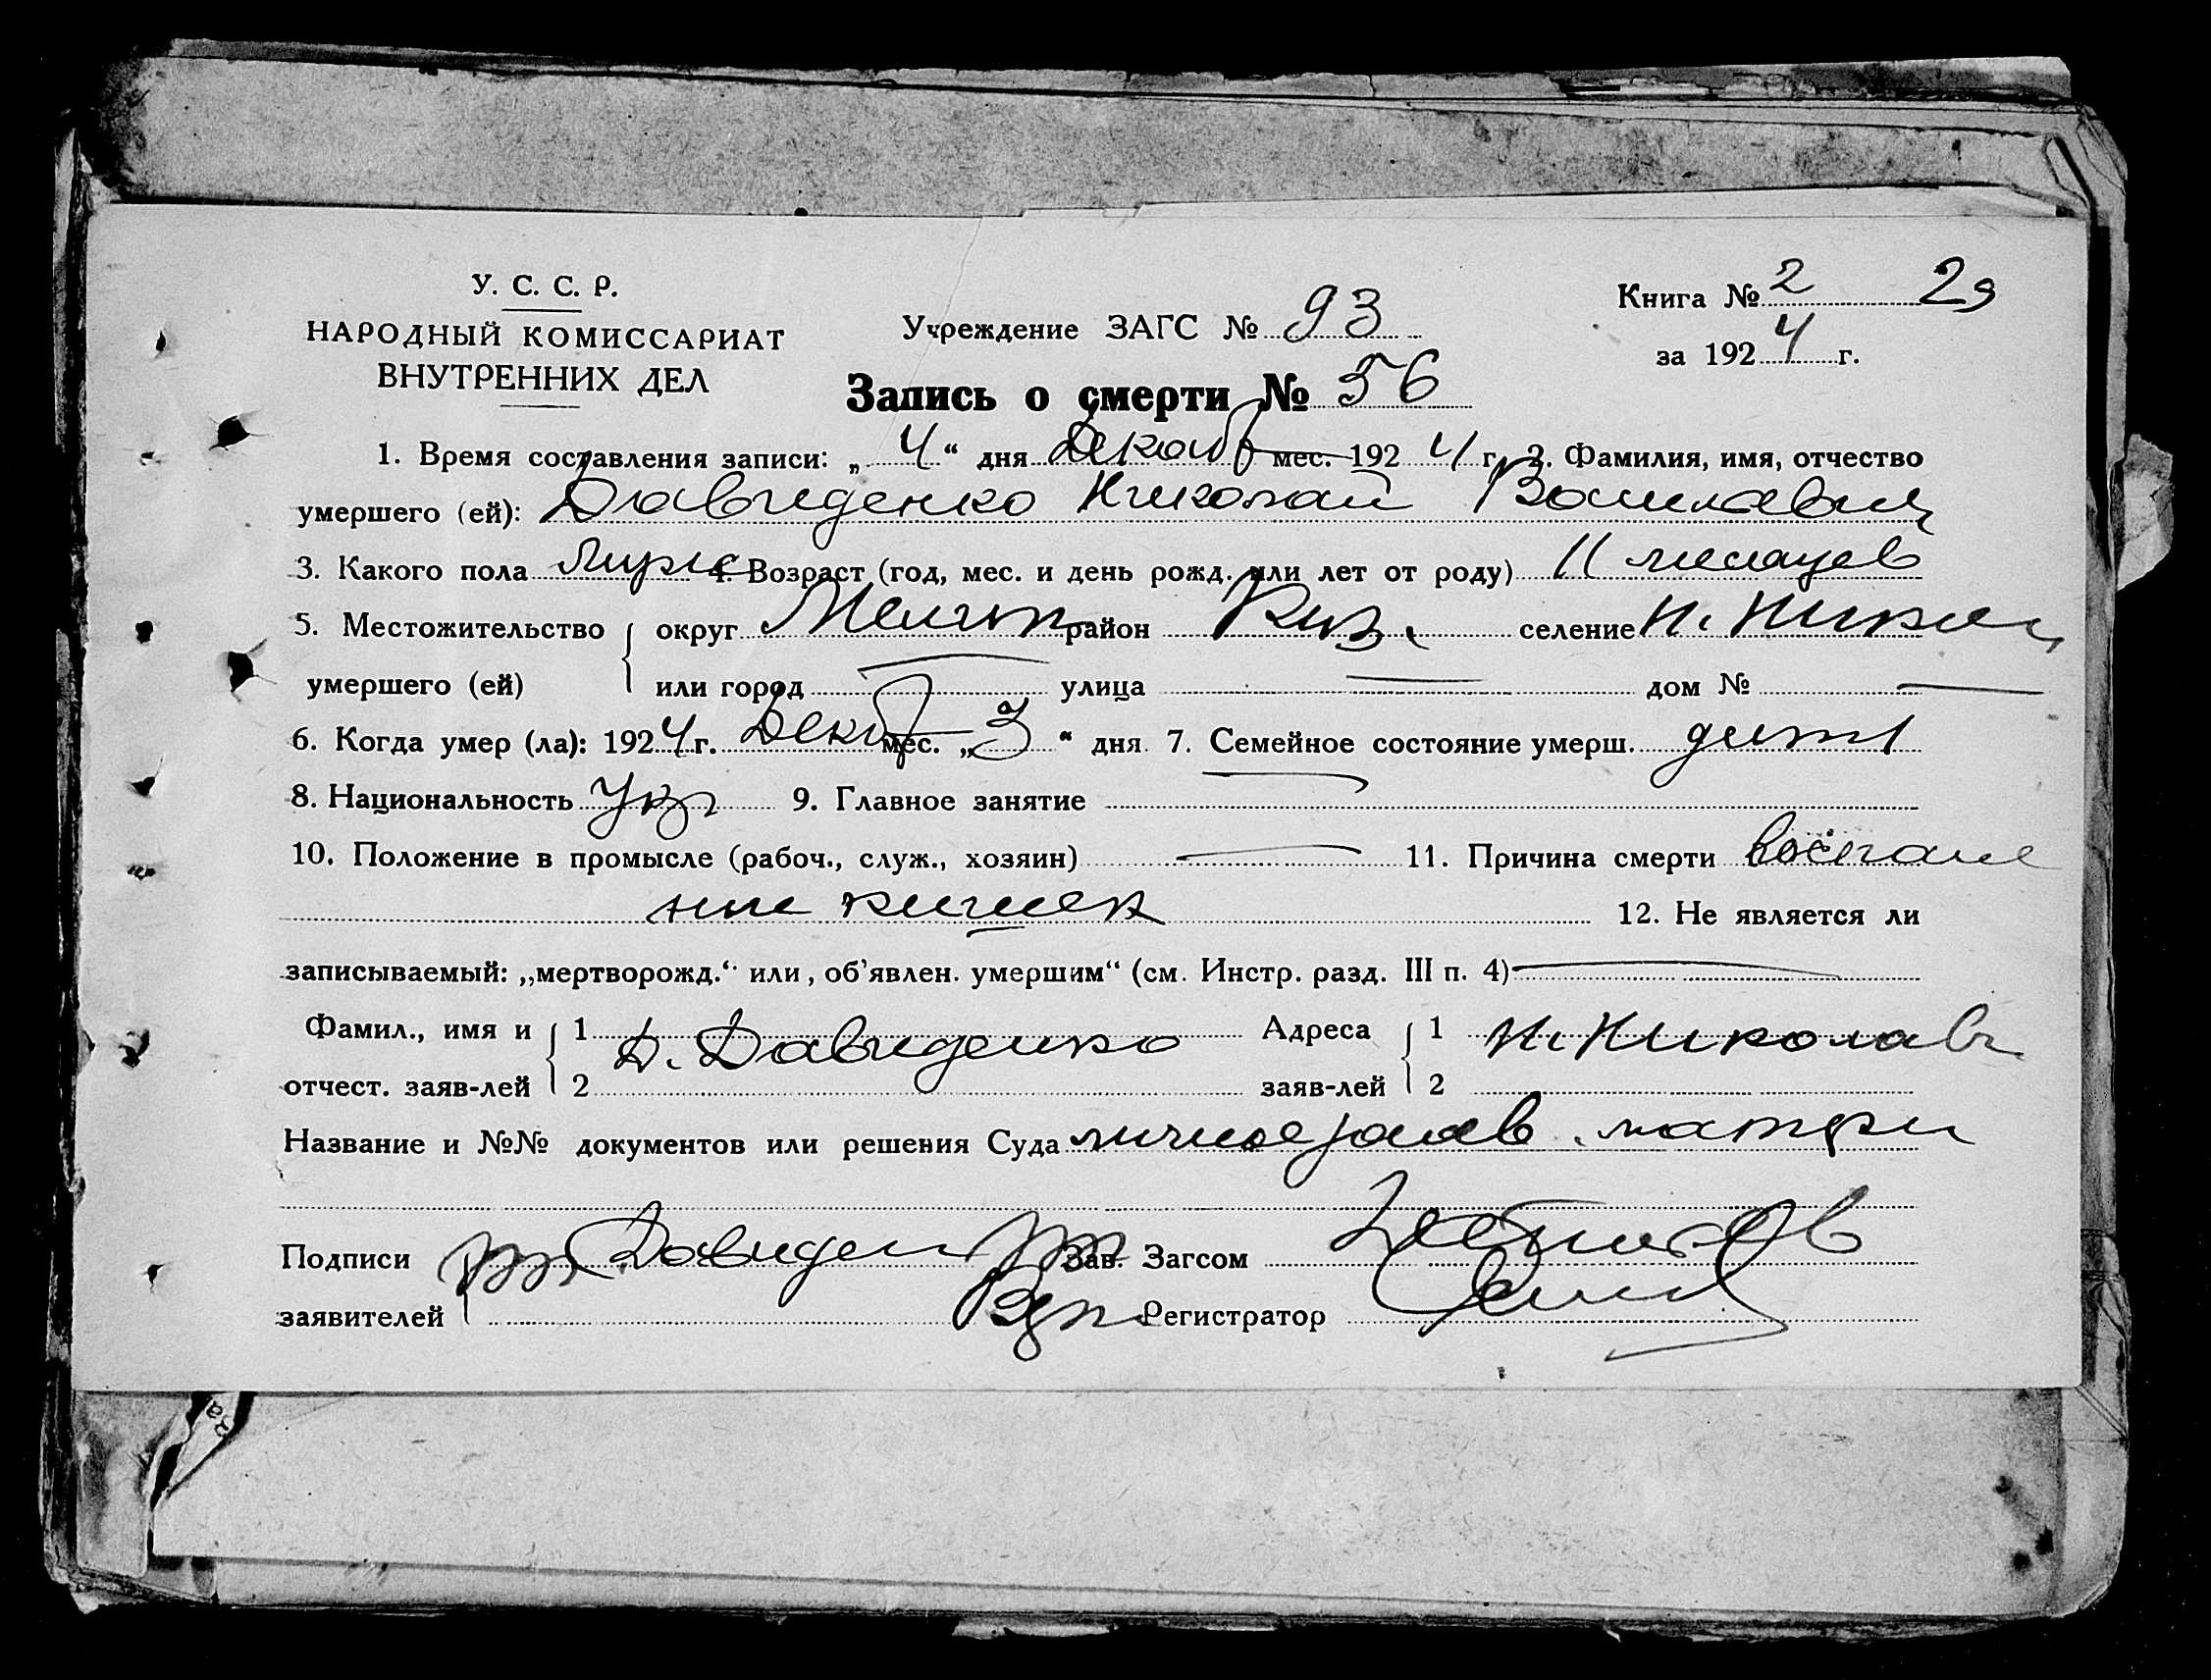 У. С. С. Р.
НАРОДНЫЙ КОМИССАРИАТ
ВНУТРЕННИХ ДЕЛ
Учреждение ЗАГС № 93
Книга № 2 29
за 1924 г.
Запись о смерти № 56
1. Время составления записи: „4“ дня Декаб мес. 1924 г. 2. Фамилия, имя, отчество
умершего (ей): Давиденко Николай
3. Какого пола Муж 4. Возраст (год, мес. и день рожд. или лет от роду) 11 месяцев
5. Местожительство округ Мелит район селение Н.
умершего (ей) или город — улица — дом № —
6. Когда умер (ла): 1924 г. Декаб мес. „3“ дня 7. Семейное состояние умерш. дитя
8. Национальность Укр 9. Главное занятие —
10. Положение в промысле (рабоч., служ., хозяин) — 11. Причина смерти воспале
ние кишек 12. Не является ли
записываемый: „мертворожд.“ или „об’явлен. умершим“ (см. Инстр. разд. III п. 4) —
Фамил., имя и 1 Д. Давиденко Адреса 1 Н. Николаев
отчест. заяв-лей 2 заяв-лей 2
Название и №№ документов или решения Суда личное заяв матери
Подписи Давиден Зав. Загсом
заявителей Регистратор